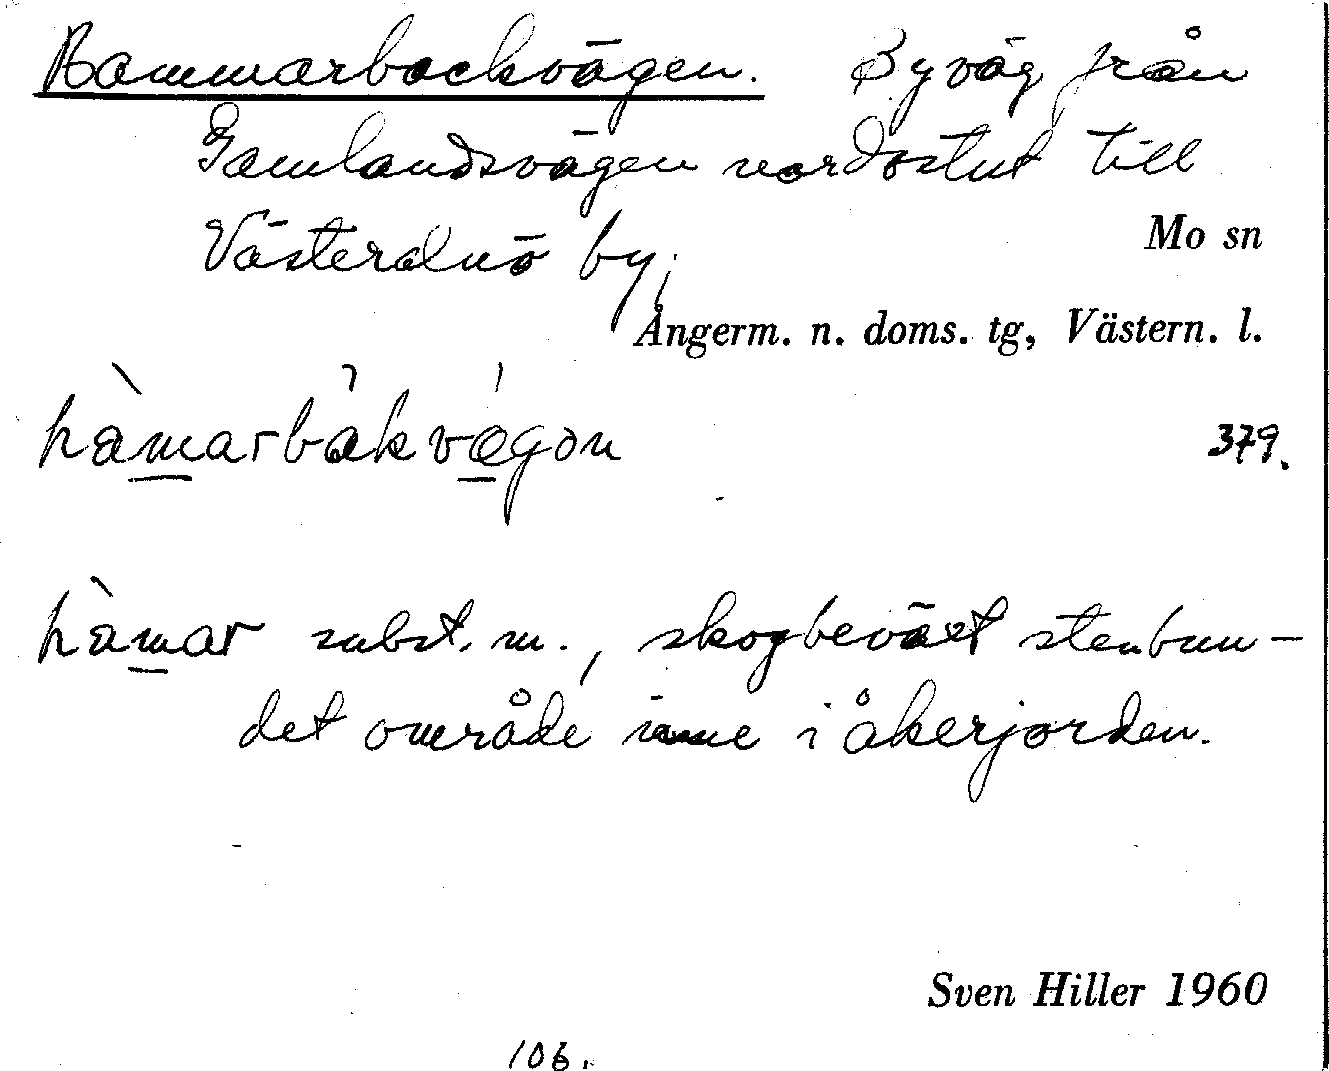 Hammarbackvägen. Byväg från
Gamlandsvägen nordostut till
Västeralnö by;
Mo sn
Ångerm. n. doms. tg, Västern. l.
hàmarbàkvǻgən
379.
hàmar subst. m., skogbeväxt stenbun-
det område inne i åkerjorden.
Sven Hiller 1960
106.